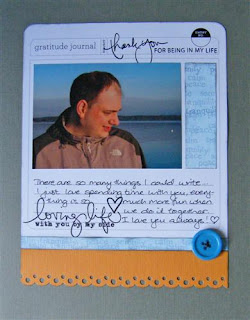 gratitude journal
thank you
FOR BEING IN MY LIFE
There are so many things I could write...
I just love spending time with you, every-
thing is so much more fun when
we do it together.
I love you always!
loving life
with you by my side